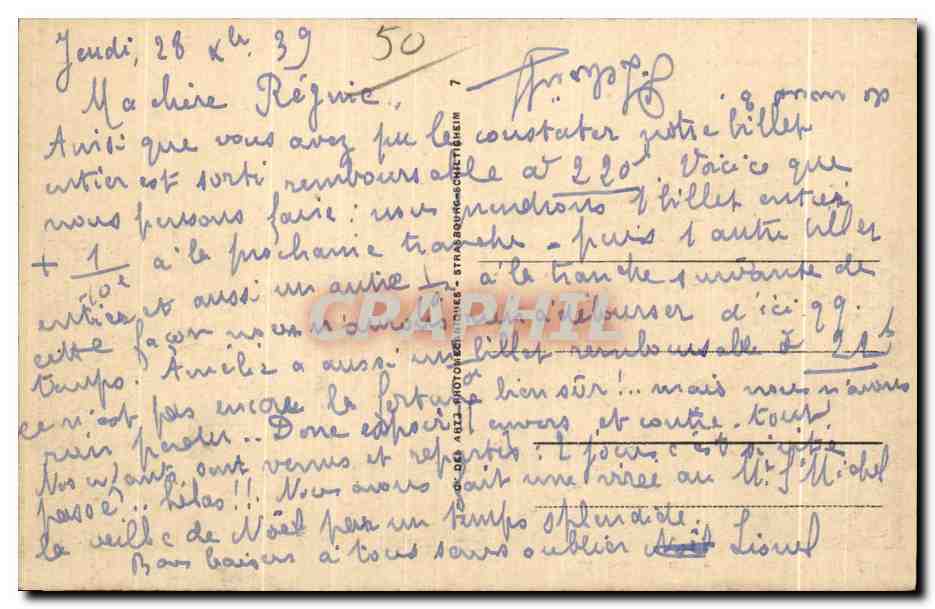 Jeudi, 28 Xbre 39
50
Ma chère Régine..
Ainsi que vous avez pu le constater notre billet
entier est sorti remboursable à 220f. Voici ce que
nous pensons faire : nous prendrons 1 billet entier
+ 1/10e à la prochaine tranche - puis 1 autre billet
entier et aussi un autre 1/10 à la tranche suivante de
cette façon nous n'aurons pas à débourser d'ici qq.
temps. a aussi un billet remboursable à 22f
ce n'est pas encore la fortune bien sûr!.. mais nous n'avons
rien perdu.. Donc espoir envers et contre tout.
Nos enfants sont venus et repartis: 2 jours c'est si vite
passé.. hélas!!. Nous avons fait une virée au Mt St Michel
la veille de Noël par un temps splendide.
Bons baisers à tous sans oublier Lionel
CRAPHIL
DES ARTS PHOTOMECHANIQUES - STRASBOURG-SCHILTIGHEIM 7